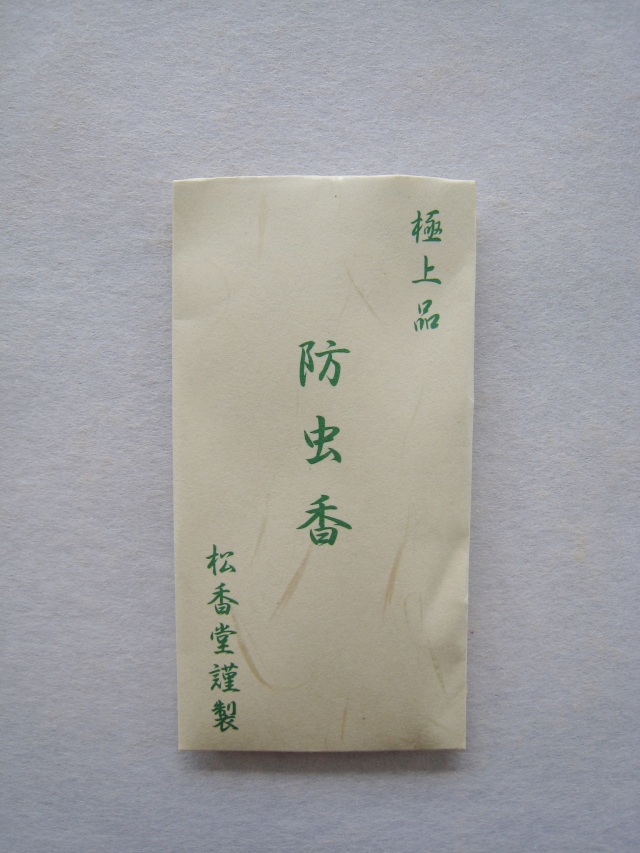 極上品
防虫香
松香堂謹製